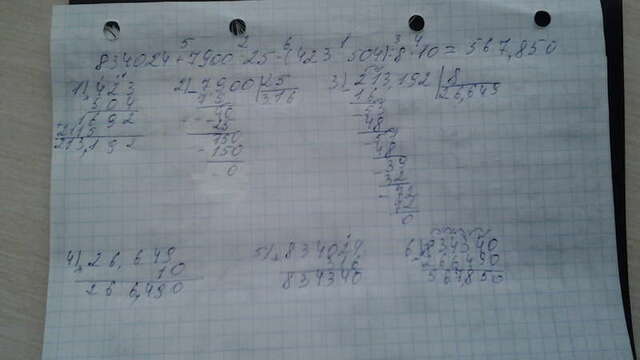 5 2 6 1 3 4
834024+7900:25-(423·504):8·10=567,850
1) 423
504
1692
2115
213,192
2) -7900 25
75 316
-40
25
150
-150
0
3) -213,192 8
16 26,649
-53
48
-51
48
-39
32
-72
72
0
4) 26,649
10
266,490
5) 834024
316
834340
6) 834340
266490
567850